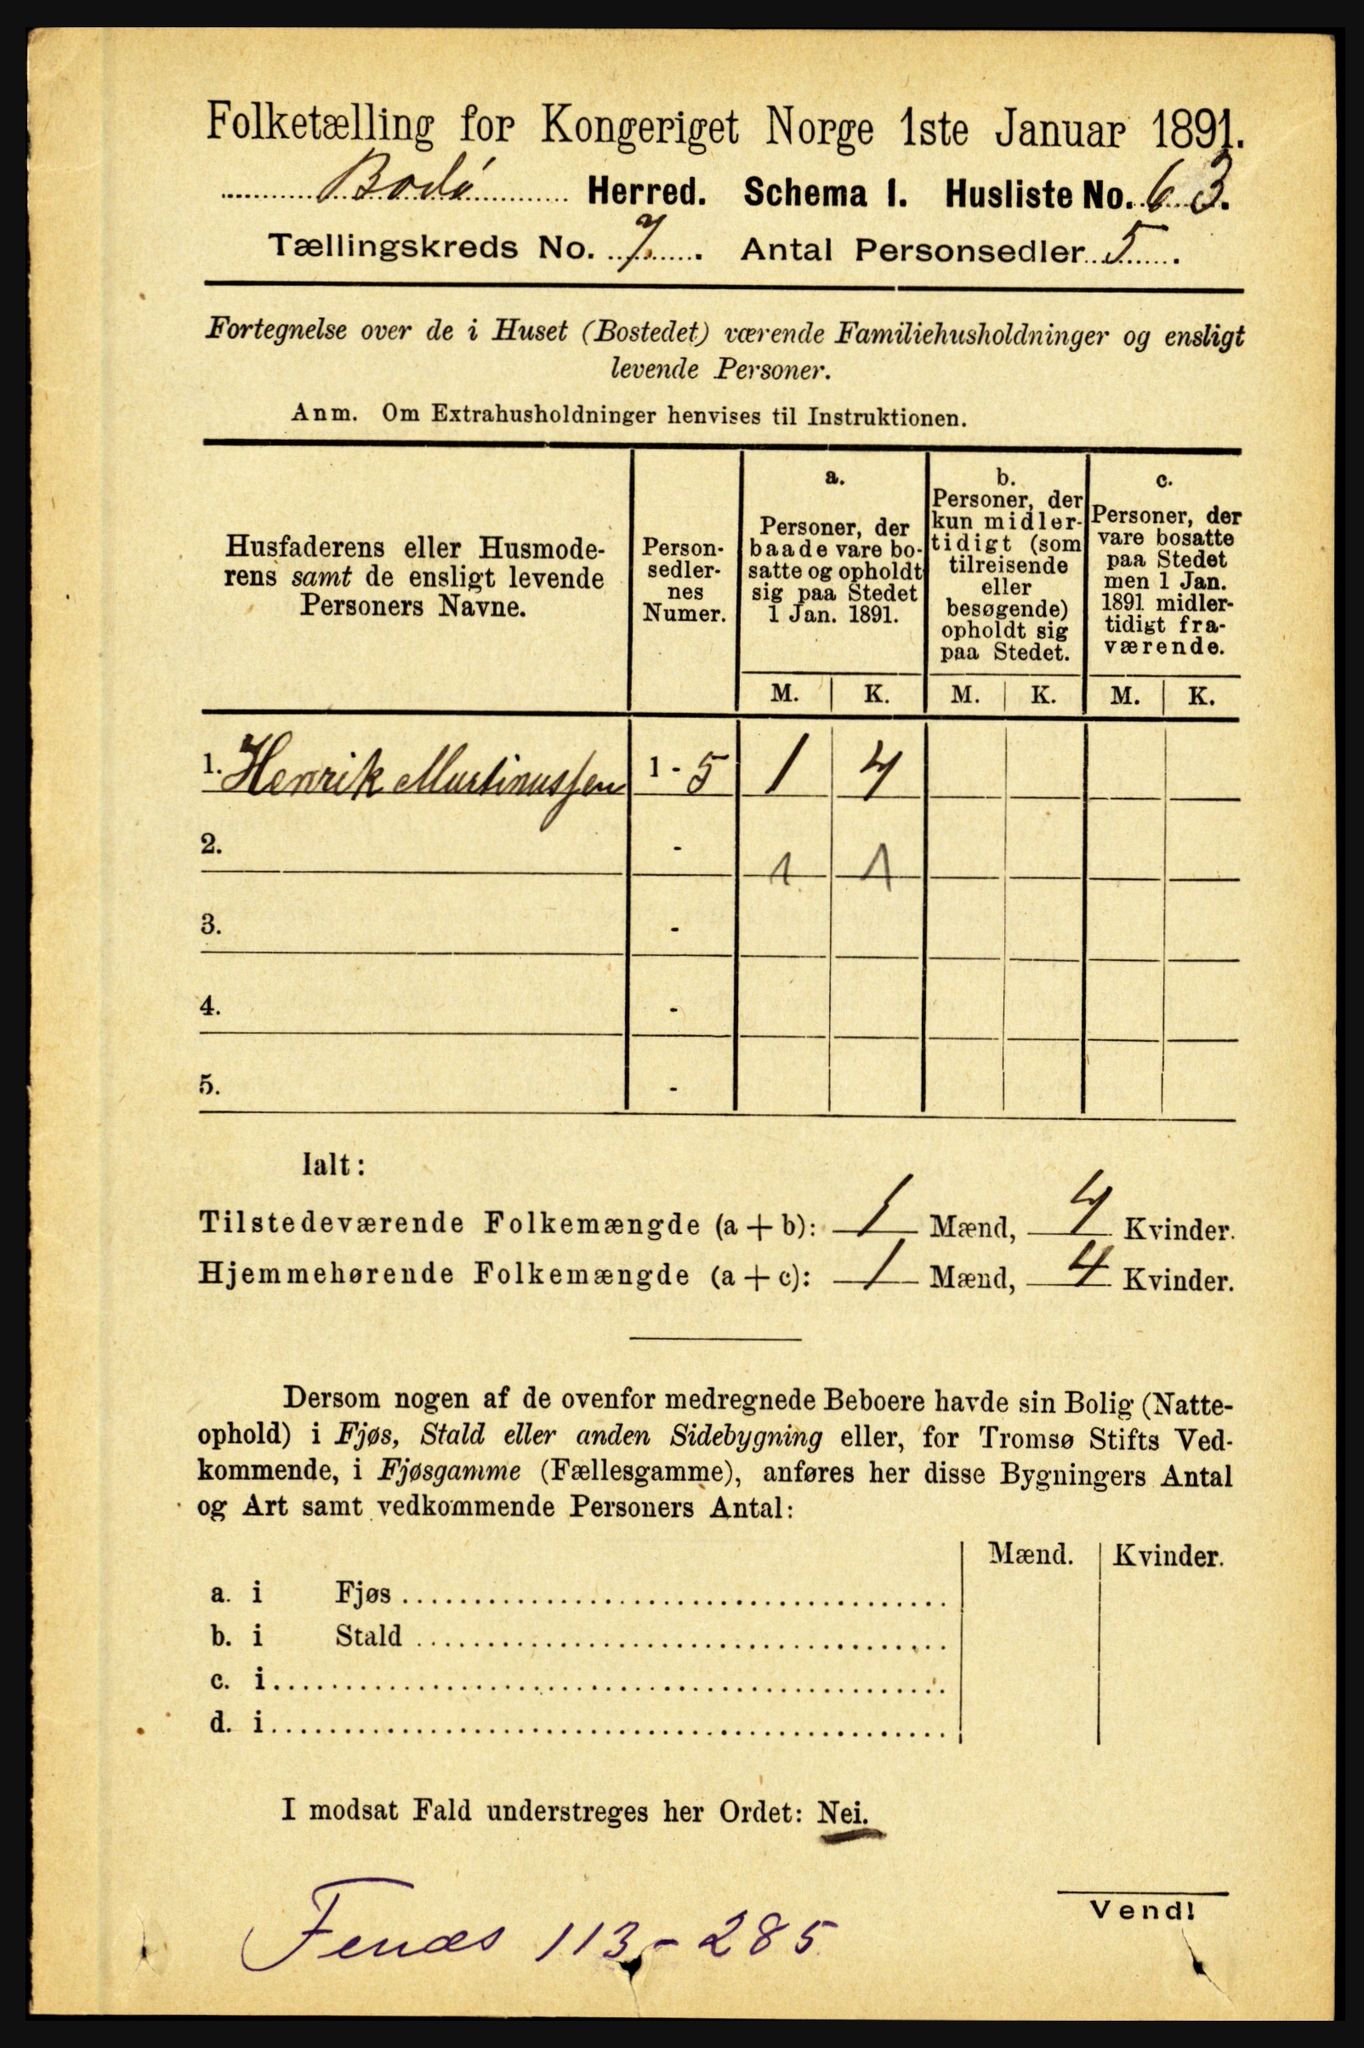 Folketælling for Kongeriget Norge 1ste Januar 1891.
Bodø Herred. Schema I. Husliste No. 63.
Tællingskreds No. 7. Antal Personsedler 5.
Fortegnelse over de i Huset (Bostedet) værende Familiehusholdninger og ensligt
levende Personer.
Anm. Om Extrahusholdninger henvises til Instruktionen.
Husfaderens eller Husmode-
rens samt de ensligt levende
Personers Navne.
Person-
sedler-
nes
Numer.
a.
Personer, der
baade vare bo-
satte og opholdt
sig paa Stedet
1 Jan. 1891.
b.
Personer, der
kun midler-
tidigt (som
tilreisende
eller
besøgende)
opholdt sig
paa Stedet.
c.
Personer, der
vare bosatte
paa Stedet
men 1 Jan.
1891 midler-
tidigt fra-
værende.
M. K. M. K. M. K.
1. Henrik Martinussen 1 - 5 1 4
2. - 1 1
3. -
4. -
5. -
Ialt:
Tilstedeværende Folkemængde (a + b): 1 Mænd, 4 Kvinder.
Hjemmehørende Folkemængde (a + c): 1 Mænd, 4 Kvinder.
Dersom nogen af de ovenfor medregnede Beboere havde sin Bolig (Natte-
ophold) i Fjøs, Stald eller anden Sidebygning eller, for Tromsø Stifts Ved-
kommende, i Fjøsgamme (Fællesgamme), anføres her disse Bygningers Antal
og Art samt vedkommende Personers Antal:
Mænd. Kvinder.
a. i Fjøs
b. i Stald
c. i
d. i
I modsat Fald understreges her Ordet: Nei.
Vend!
Fenæs 113 - 285